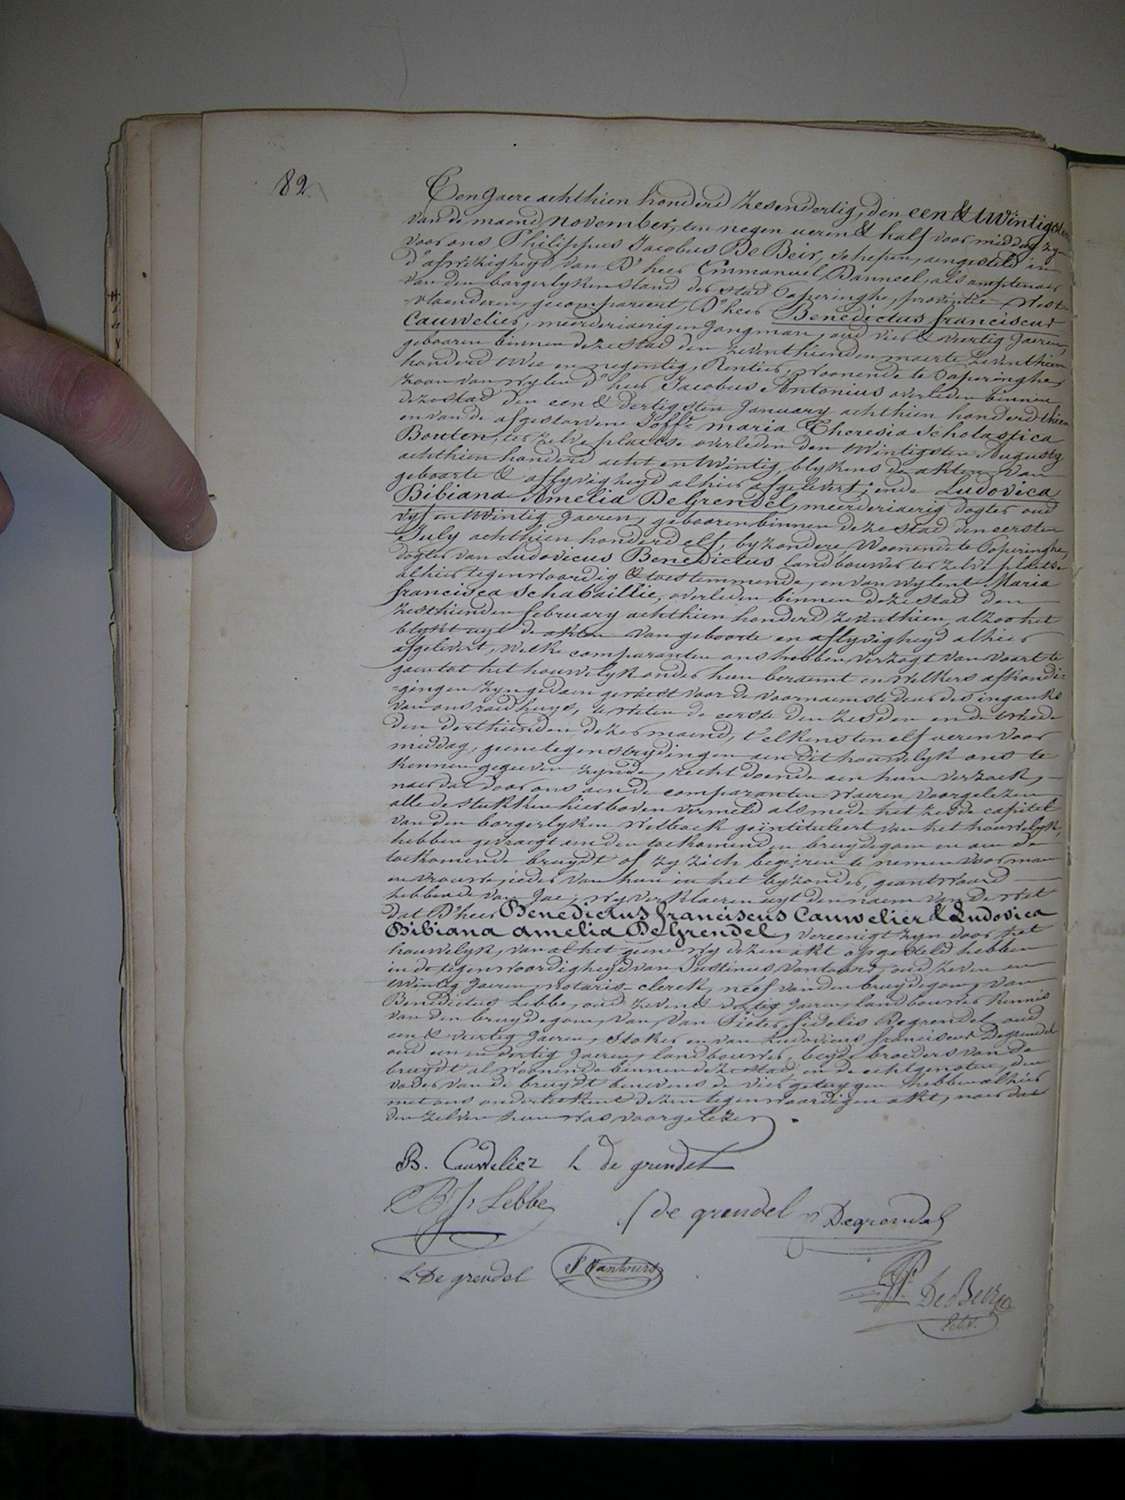 82
Ten jaere achthien honderd zesendertig, den een & twintigsten
van de maend november, ten negen ueren & half voor middag zyn
voor ons Philippus Jacobus De Beir, schepen, aengesteld in
d'afwezigheyd van D'heer Emmanuel Danneel, als amptenaer
van den borgerlyken stand der stad Poperinghe, provintie West
vlaenderen, gecompareert, D'heer Benedictus franciscus
Cauwelier, meerderjaerigen jongman, oud vier & veertig jaeren,
gebooren binnen deze stad den zeventhienden maerte zeventhien
honderd twee en negentig, Rentier, woonende te Poperinghe,
zoon van wylen d'heer Jacobus Antonius overleden binnen
deze stad den een & dertigsten January achthien honderd thien
en van de afgestorvene Joffe maria Theresia Scholastica
Bouten, ter zelve plaetse overleden den twintigsten Augusty
achthien honderd acht en twintig, blykens de akten van
geboorte & aflyvigheyd alhier afgelevert; ende Ludovica
Bibiana Amelia De Grendel, meerderjaerig dogter oud
vyf en twintig jaeren, gebooren binnen deze stad den eersten
July achthien honderd elf, byzondere woonende te Poperinghe,
dogter van Ludovicus Benedictus landbouwer ter zelve plaetse
alhier tegenwoordig & toestemmende, en van wylent Maria
francisca Schabaillie, overleden binnen deze stad den
zesthienden february achthien honderd zeventhien, alzoo het
blykt uyt de akten van geboorte en aflyvigheyd alhier
afgelevert, welke comparanten ons hebben verzogt van voort te
gaen tot het houwelyk onder hun beraemt en welkers afkondi-
-gingen zyn gedaen geweest voor de voornaemste deur des ingangs
van ons raedhuys, te weten de eerste den zesden en de tweede
den derthienden dezer maend, telkens ten elf ueren voor
middag, geene tegenstrydingen aen dit houwelyk ons te
kennen gegeeven zynde, recht doende aen hun verzoek,
naer dat door ons aen de comparanten waeren voorgelezen
alle de stukken hierboven vermeld als mede het zesde capitel
van den borgerlyken wetboek geïntituleert van het houwelyk,
hebben gevraegt aen den toekomenden bruydegom en aen de
toekomende bruydt of zy zich begeeren te nemen voor man
en vrouw, ieder van hun in het byzonder, geantwoord
hebbende van Jae, wy verklaeren uyt den naem van de wet
dat D'heer Benedictus franciscus Cauwelier & Ludovica
Bibiana Amelia De Grendel, vereenigt zyn door het
houwelyk, van al het geene wy dezen akt opgesteld hebben
in de tegenwoordigheyd van Justinus Vantours, oud zeven en
twintig jaeren, notaris clerck, neef van den bruydegom, van
Benedictus Lebbe, oud zeven & veertig jaeren, landbouwer kennis
van den bruydegom, van Pieter fidelis Degrendel, oud
een & veertig jaeren, stoker en van Ludovicus franciscus Degrendel
oud een en dertig jaeren, landbouwer, beyde broeders van de
bruydt al woonende binnen deze stad, en de echtgenoten, den
vader van de bruydt benevens de vier getuygen hebben alhier
met ons onderteekent dezen tegenwoordigen akt, naer dat
den zelven hun was voorgelezen
B. Cauwelier L de grendel
B J Lebbe
f de grendel P Degrendel
L De grendel J Vantours
P J De Beir
Schep.